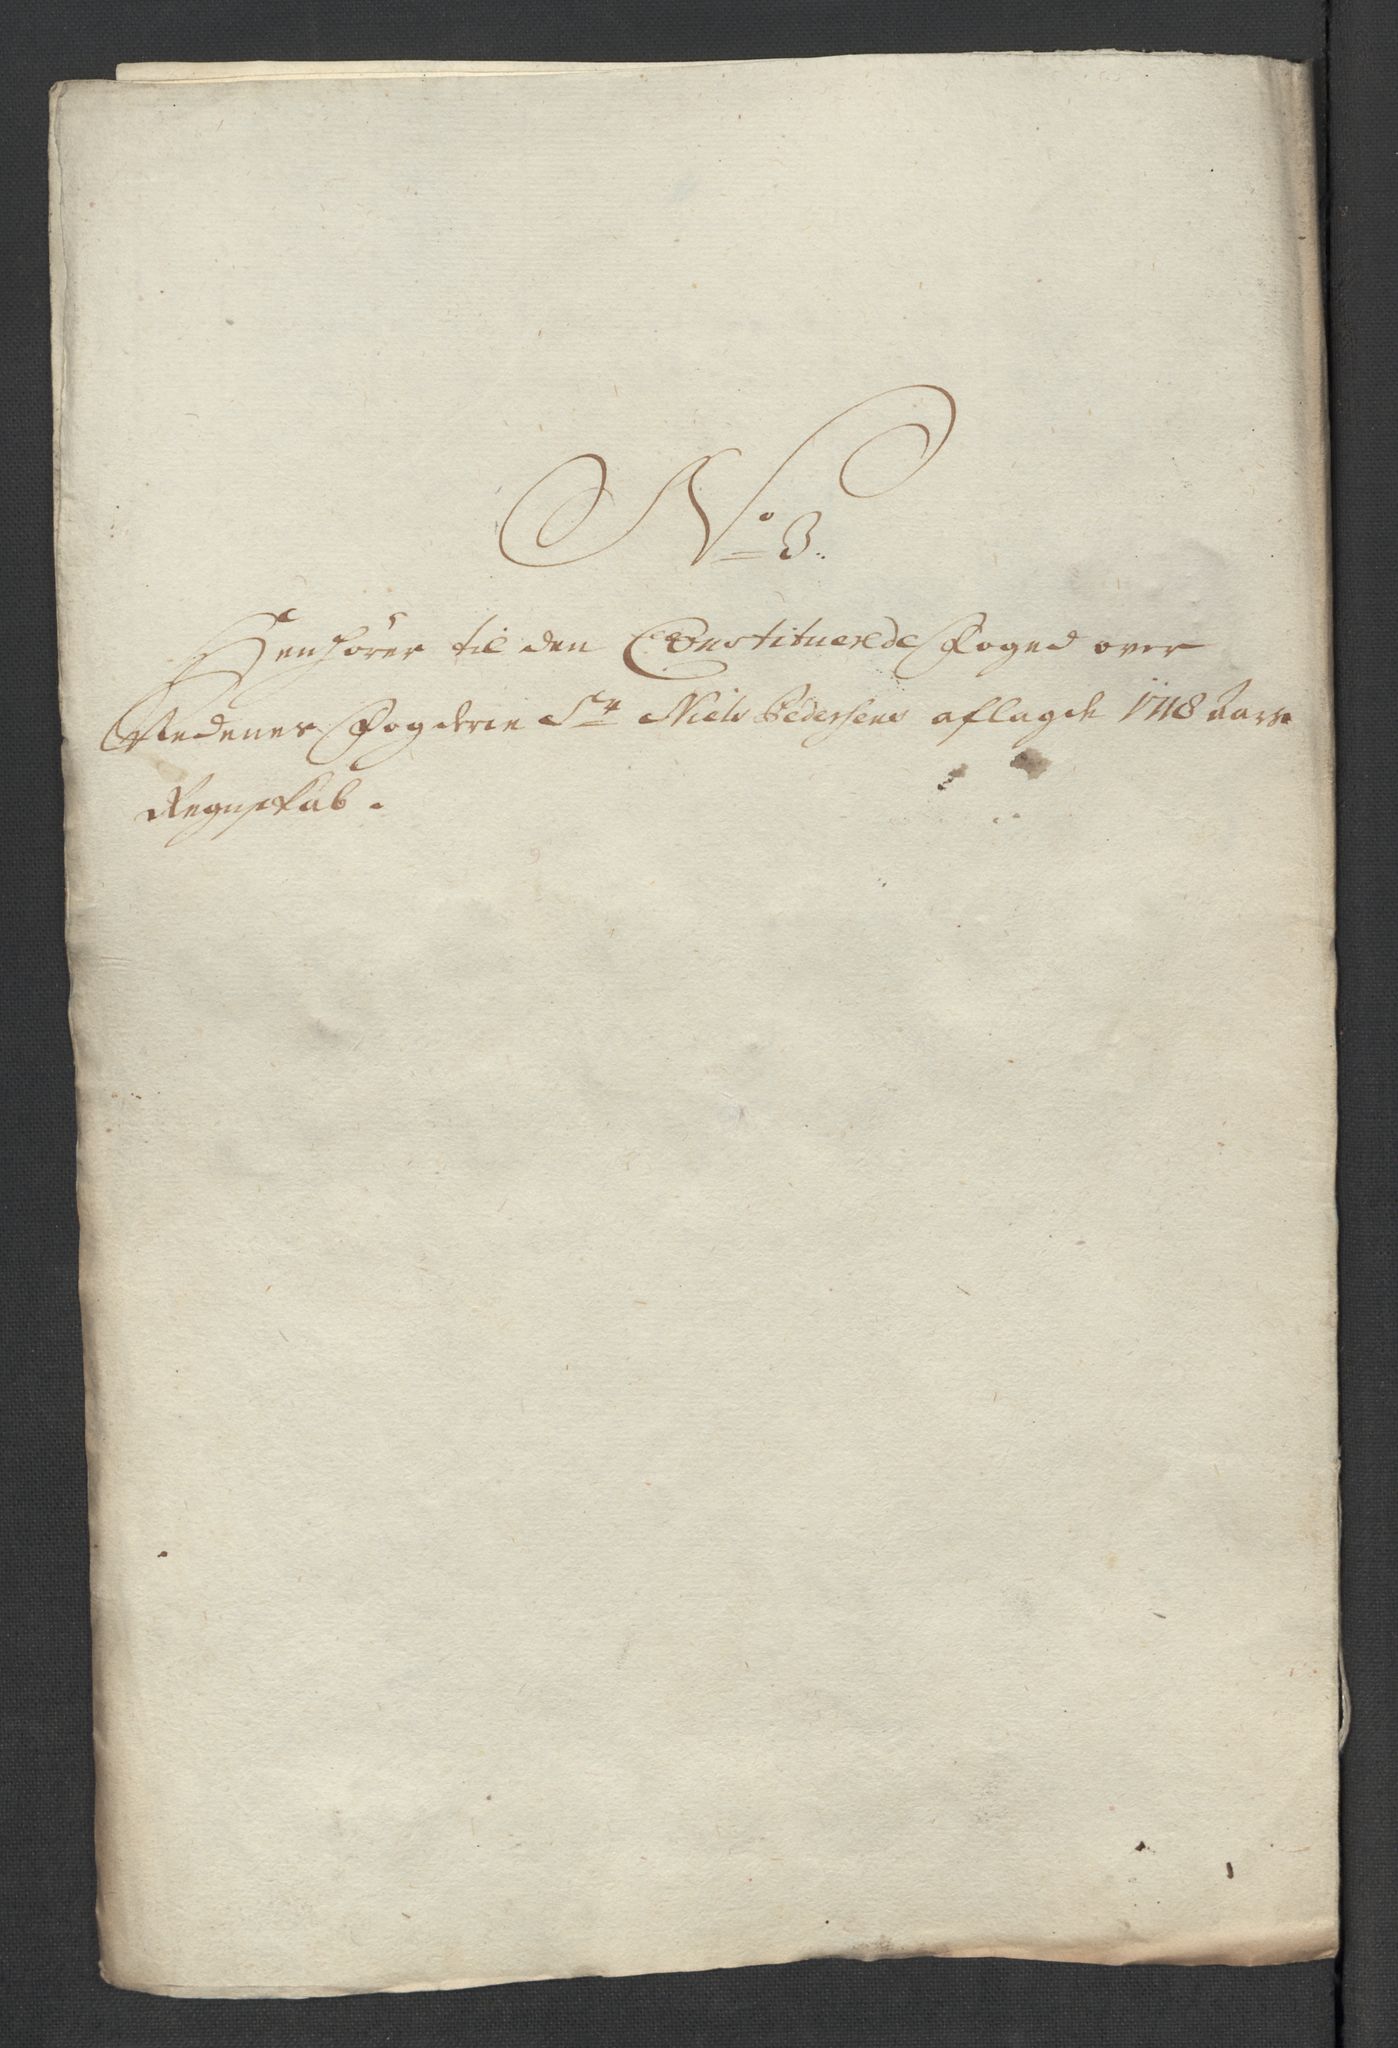 No 3.
Henhörer til den Constituerede Foged over
Nedenes Fogderie Sr Niels Pedersens aflagde 1718 Aars
Regnskab.